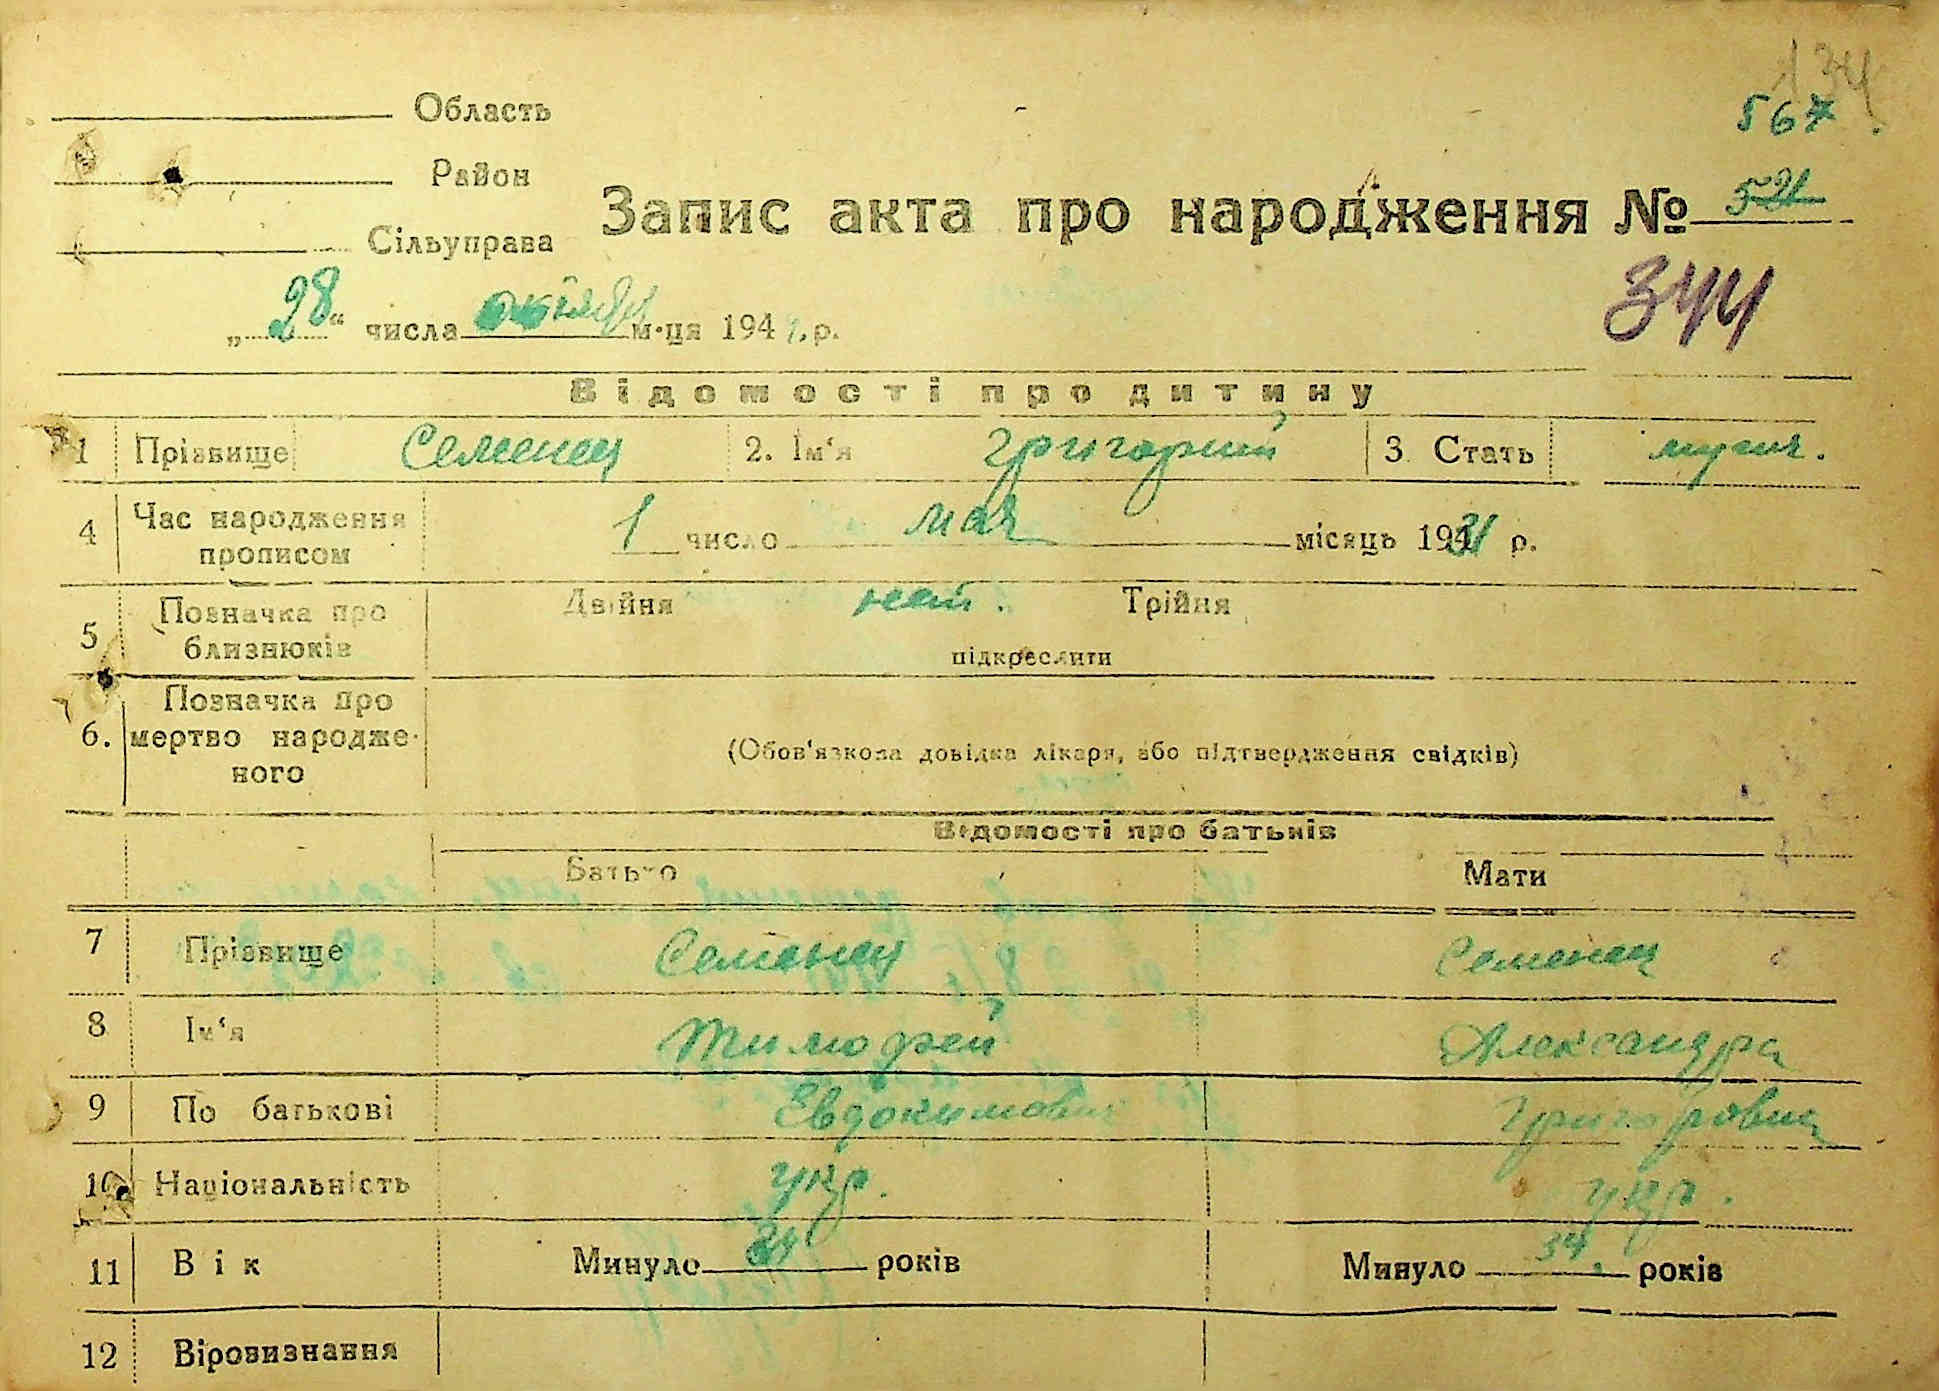 134
567
Область
Район
Сільуправа
Запис акта про народження № 521
344
„28“ числа октября м-ця 194 р.
Відомості про дитину
1 Прізвище Семенец 2. Ім'я Григорий 3 Стать мужч.
4 Час народження прописом 1 число мая місяць 1931 р.
5 Позначка про близнюків Двійня нет. Трійня
підкреслити
6. Позначка про мертво народженого
(Обов'язкова довідка лікаря, або підтвердження свідків)
Відомості про батьків
Батько Мати
7 Прізвище Семенец Семенец
8 Ім'я Тимофей Александра
9 По батькові Евдокимович Григоровна
10 Національність укр. укр.
11 Вік Минуло 34 років Минуло 34. років
12 Віровизнання